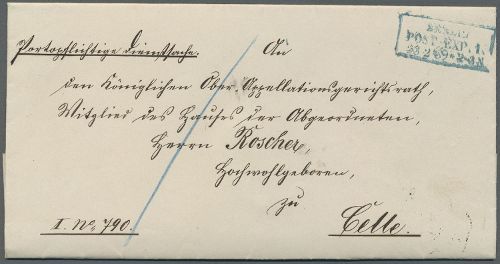 Portopflichtige Dienstsache.
An
BERLIN
POST. EXP. 1.
den Königlichen Ober-Appellationsgerichtsrath,
Mitglied des Hauses der Abgeordneten,
Herrn Roscher,
Hochwohlgeboren,
zu
I. No. 790.
Celle.